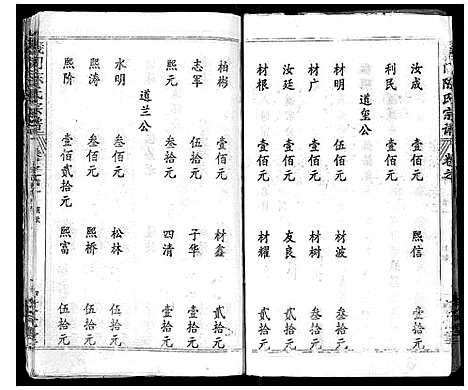 门陈氏宗譜 卷之
汝成 壹佰元 熙信 壹拾元
利民 壹佰元
道皇公
材明 壹佰元 材波 叁拾元
材广 壹佰元 材树 叁拾元
汝廷 壹佰元 友良 贰拾元
材根 壹佰元 材耀 贰拾元
柏彬 壹佰元 材鑫 贰拾元
志军 伍拾元 子华 壹拾元
熙元 叁拾元 四清 壹拾元
道兰公
水明 叁佰元 松林 伍拾元
熙涛 叁佰元 熙桥 伍拾元
熙阶 壹佰贰拾元 熙富 伍拾元